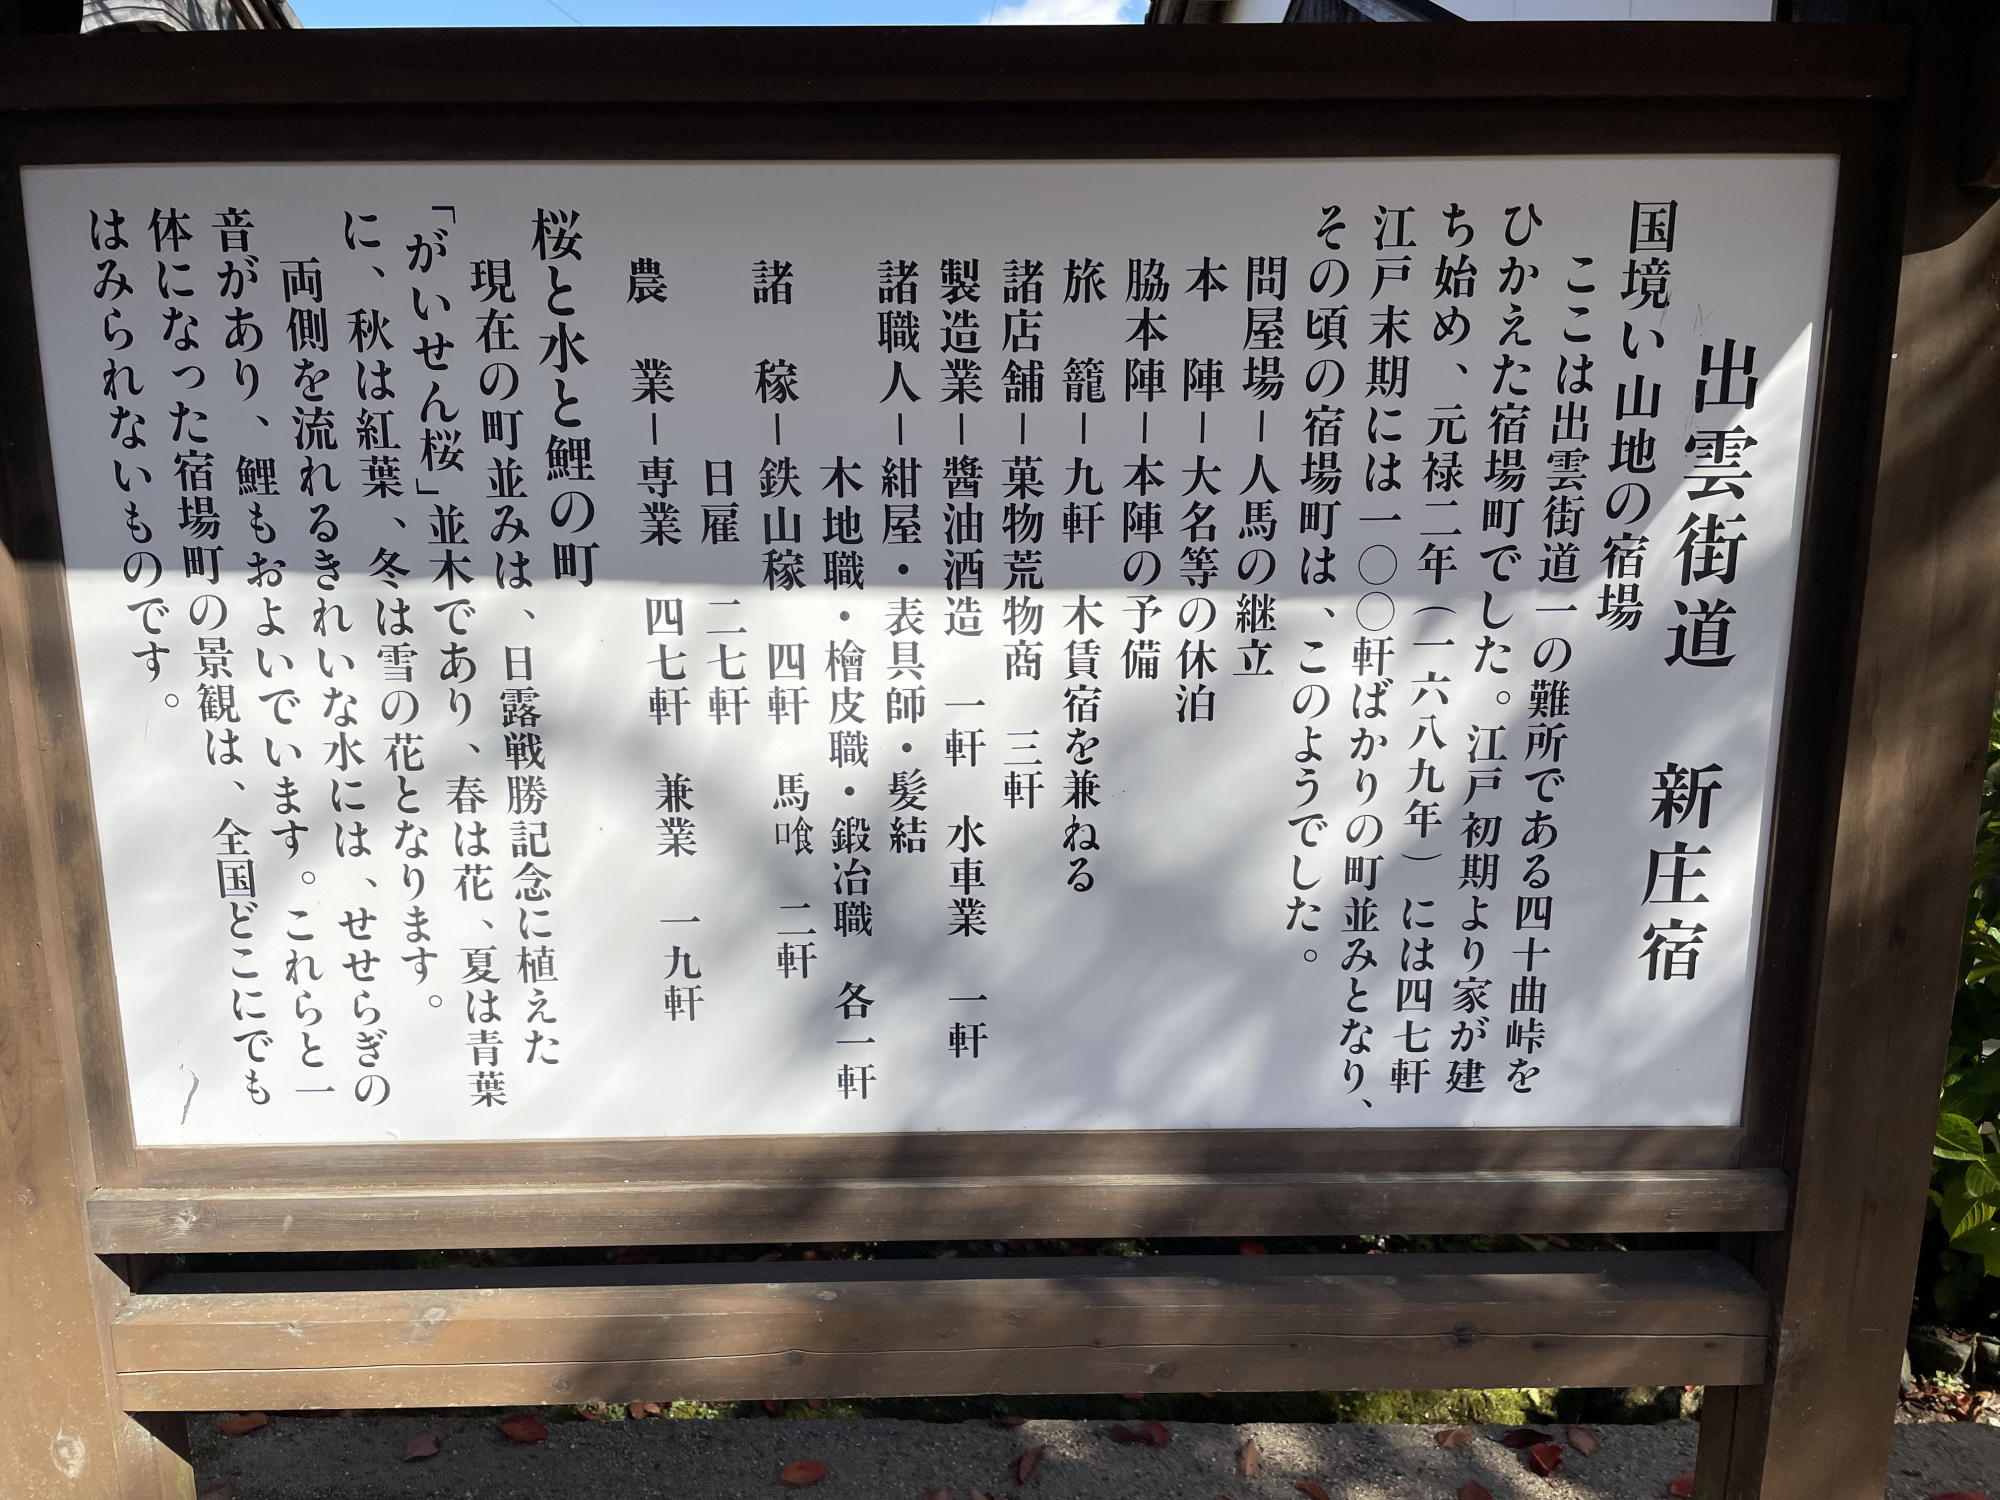 出雲街道　新庄宿
国境い山地の宿場
ここは出雲街道一の難所である四十曲峠を
ひかえた宿場町でした。江戸初期より家が建
ち始め、元禄二年（一六八九年）には四七軒
江戸末期には一〇〇軒ばかりの町並みとなり、
その頃の宿場町は、このようでした。
問屋場－人馬の継立
本　陣－大名等の休泊
脇本陣－本陣の予備
旅　籠－九軒　木賃宿を兼ねる
諸店舗－菓物荒物商　三軒
製造業－醬油酒造　一軒　水車業　一軒
諸職人－紺屋・表具師・髪結
木地職・檜皮職・鍛冶職　各一軒
諸　稼－鉄山稼　四軒　馬喰　二軒
日雇　二七軒
農　業－専業　四七軒　兼業　一九軒
桜と水と鯉の町
現在の町並みは、日露戦勝記念に植えた
「がいせん桜」並木であり、春は花、夏は青葉
に、秋は紅葉、冬は雪の花となります。
両側を流れるきれいな水には、せせらぎの
音があり、鯉もおよいでいます。これらと一
体になった宿場町の景観は、全国どこにでも
はみられないものです。